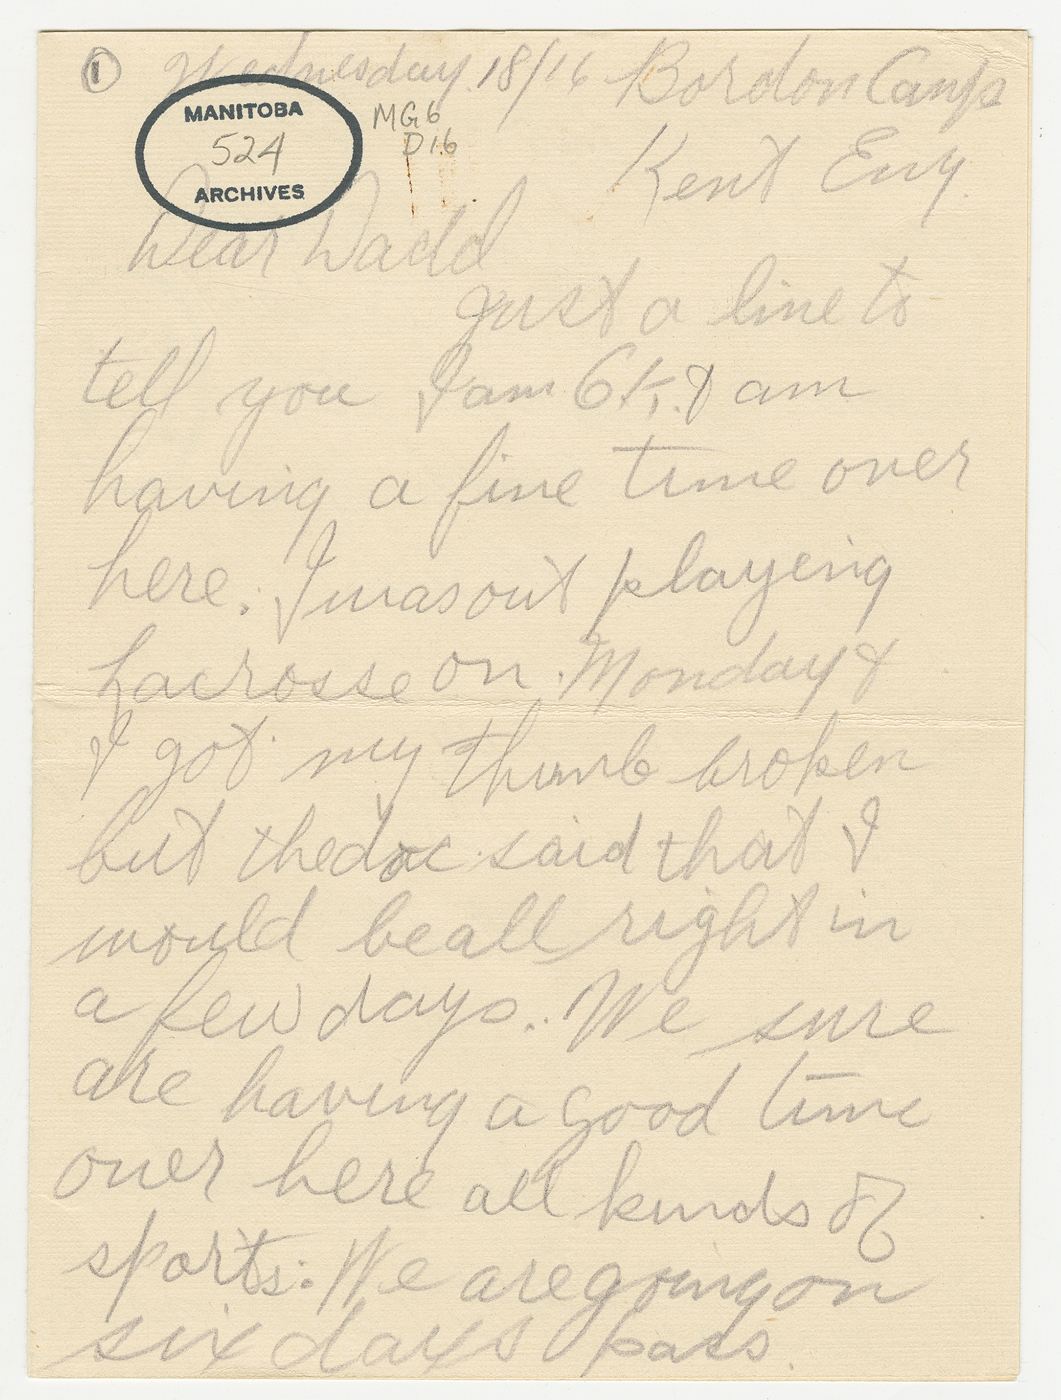 ① Wednesday 18/16 Bordon Camp
MANITOBA
524
ARCHIVES
MG6
D16
Kent Eng.
Dear Dadd
Just a line to
tell you I am O.K. & am
having a fine time over
here. I was out playeing
Lacrosse on Monday &
I got my thumb broken
but the doc said that I
would be all right in
a few days. We sure
are having a good time
over here all kinds of
sports. We are going on
six days pass.